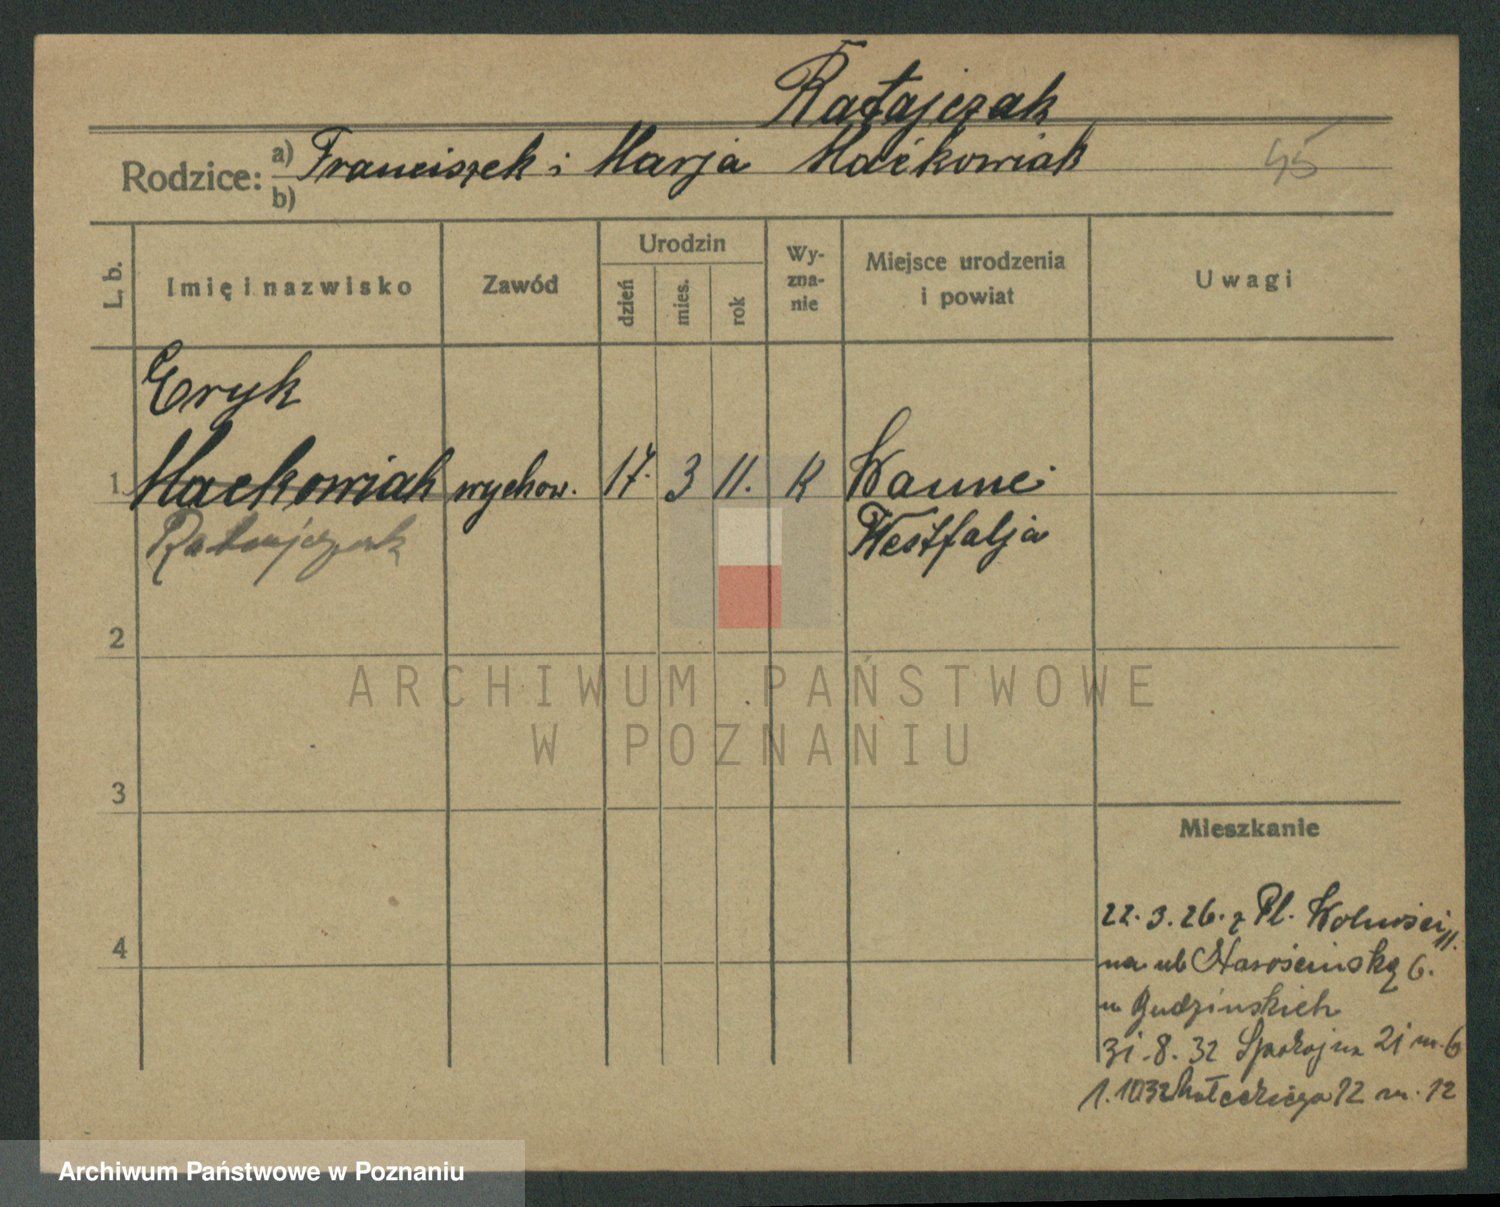 Ratajczak
Rodzice: a) Franciszek i Marja Maćkowiak
b)
45
L. b.
Imię i nazwisko
Zawód
Urodzin
dzień
mies.
rok
Wy-
zna-
nie
Miejsce urodzenia
i powiat
Uwagi
Eryk
1 Maćkowiak wychow. 17. 3 11. K Wanne
Ratajczak Westfalja
2
ARCHIWUM PAŃSTWOWE
W POZNANIU
3
Mieszkanie
4
22.3.26. z Pl. Wolności 11.
na ul 6.
u Budzińskich
31.8.32 Spokojna 21 m. 6
1.1032 Małeckiego 12 m. 12
Archiwum Państwowe w Poznaniu